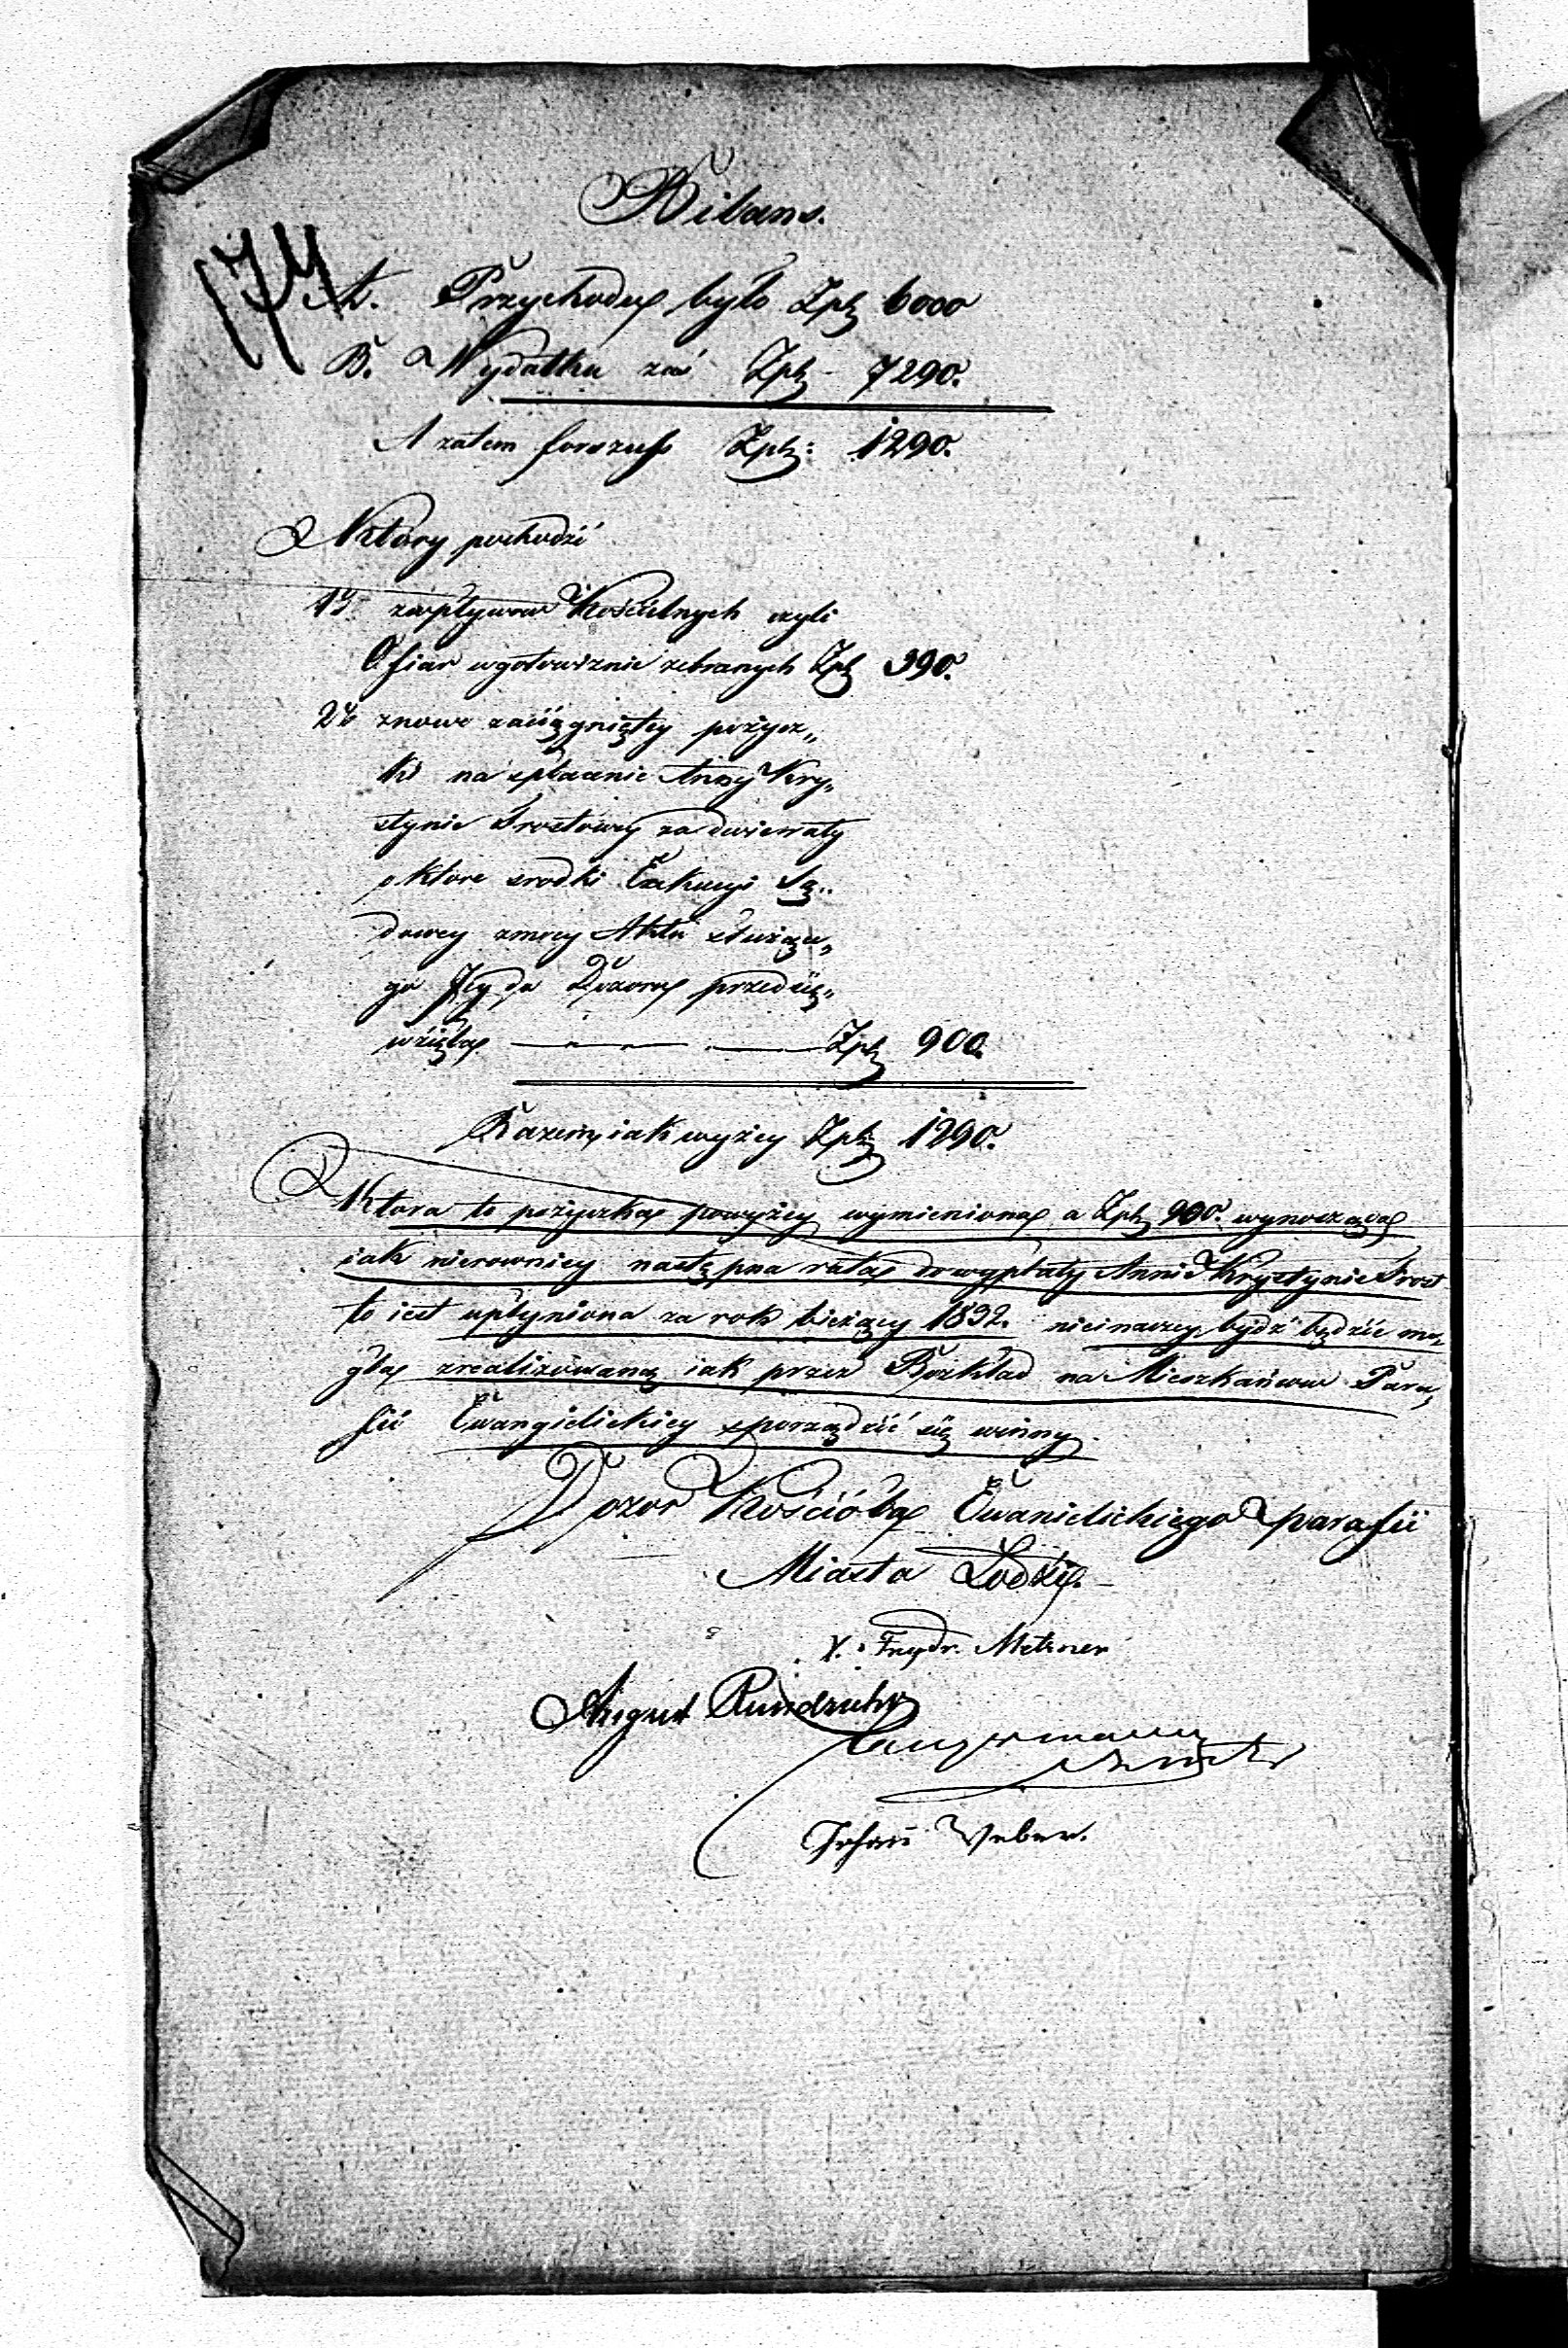 Bilans.
174
A. Przychodu było Zpł 6000
B. Wydatku zaś Zpł 7290.
A zatem forszuss Zpł: 1290.
Który pochodzi
1º zwpływow Kościelnych czyli
Ofiar wgotowiznie zebranych Zpł 390.
2º znowo zaciągniętey pożycz„
ki na spłacenie Anny Kry„
stynie Frostowey za dwie raty
o ktore srodki Exekucyi Są„
dowey zmocy Aktu służące„
go Jey do Dozoru przedsię„
wzięła Zpł 900.
Razem, iak wyżey Zpł 1290.
Ktora to pożyczka powyżey wymieniona a Zpł 900. wynosząca
iak nierowniey następna rata do wypłaty Annie Krystynie Frost
to iest upłyniona za rok bieżący 1832. nieinaczey bydź będzie mo„
gła zrealizowaną iak przez Rozkład na Mieszkańcow Para„
fii Ewangielickiey sporządzić się winny.
Dozor Kościoła Ewanielickiego parafii
Miasta Łodzi.
Frydr. Metzner
August Rundzieher
Langermann
Johann Weber.